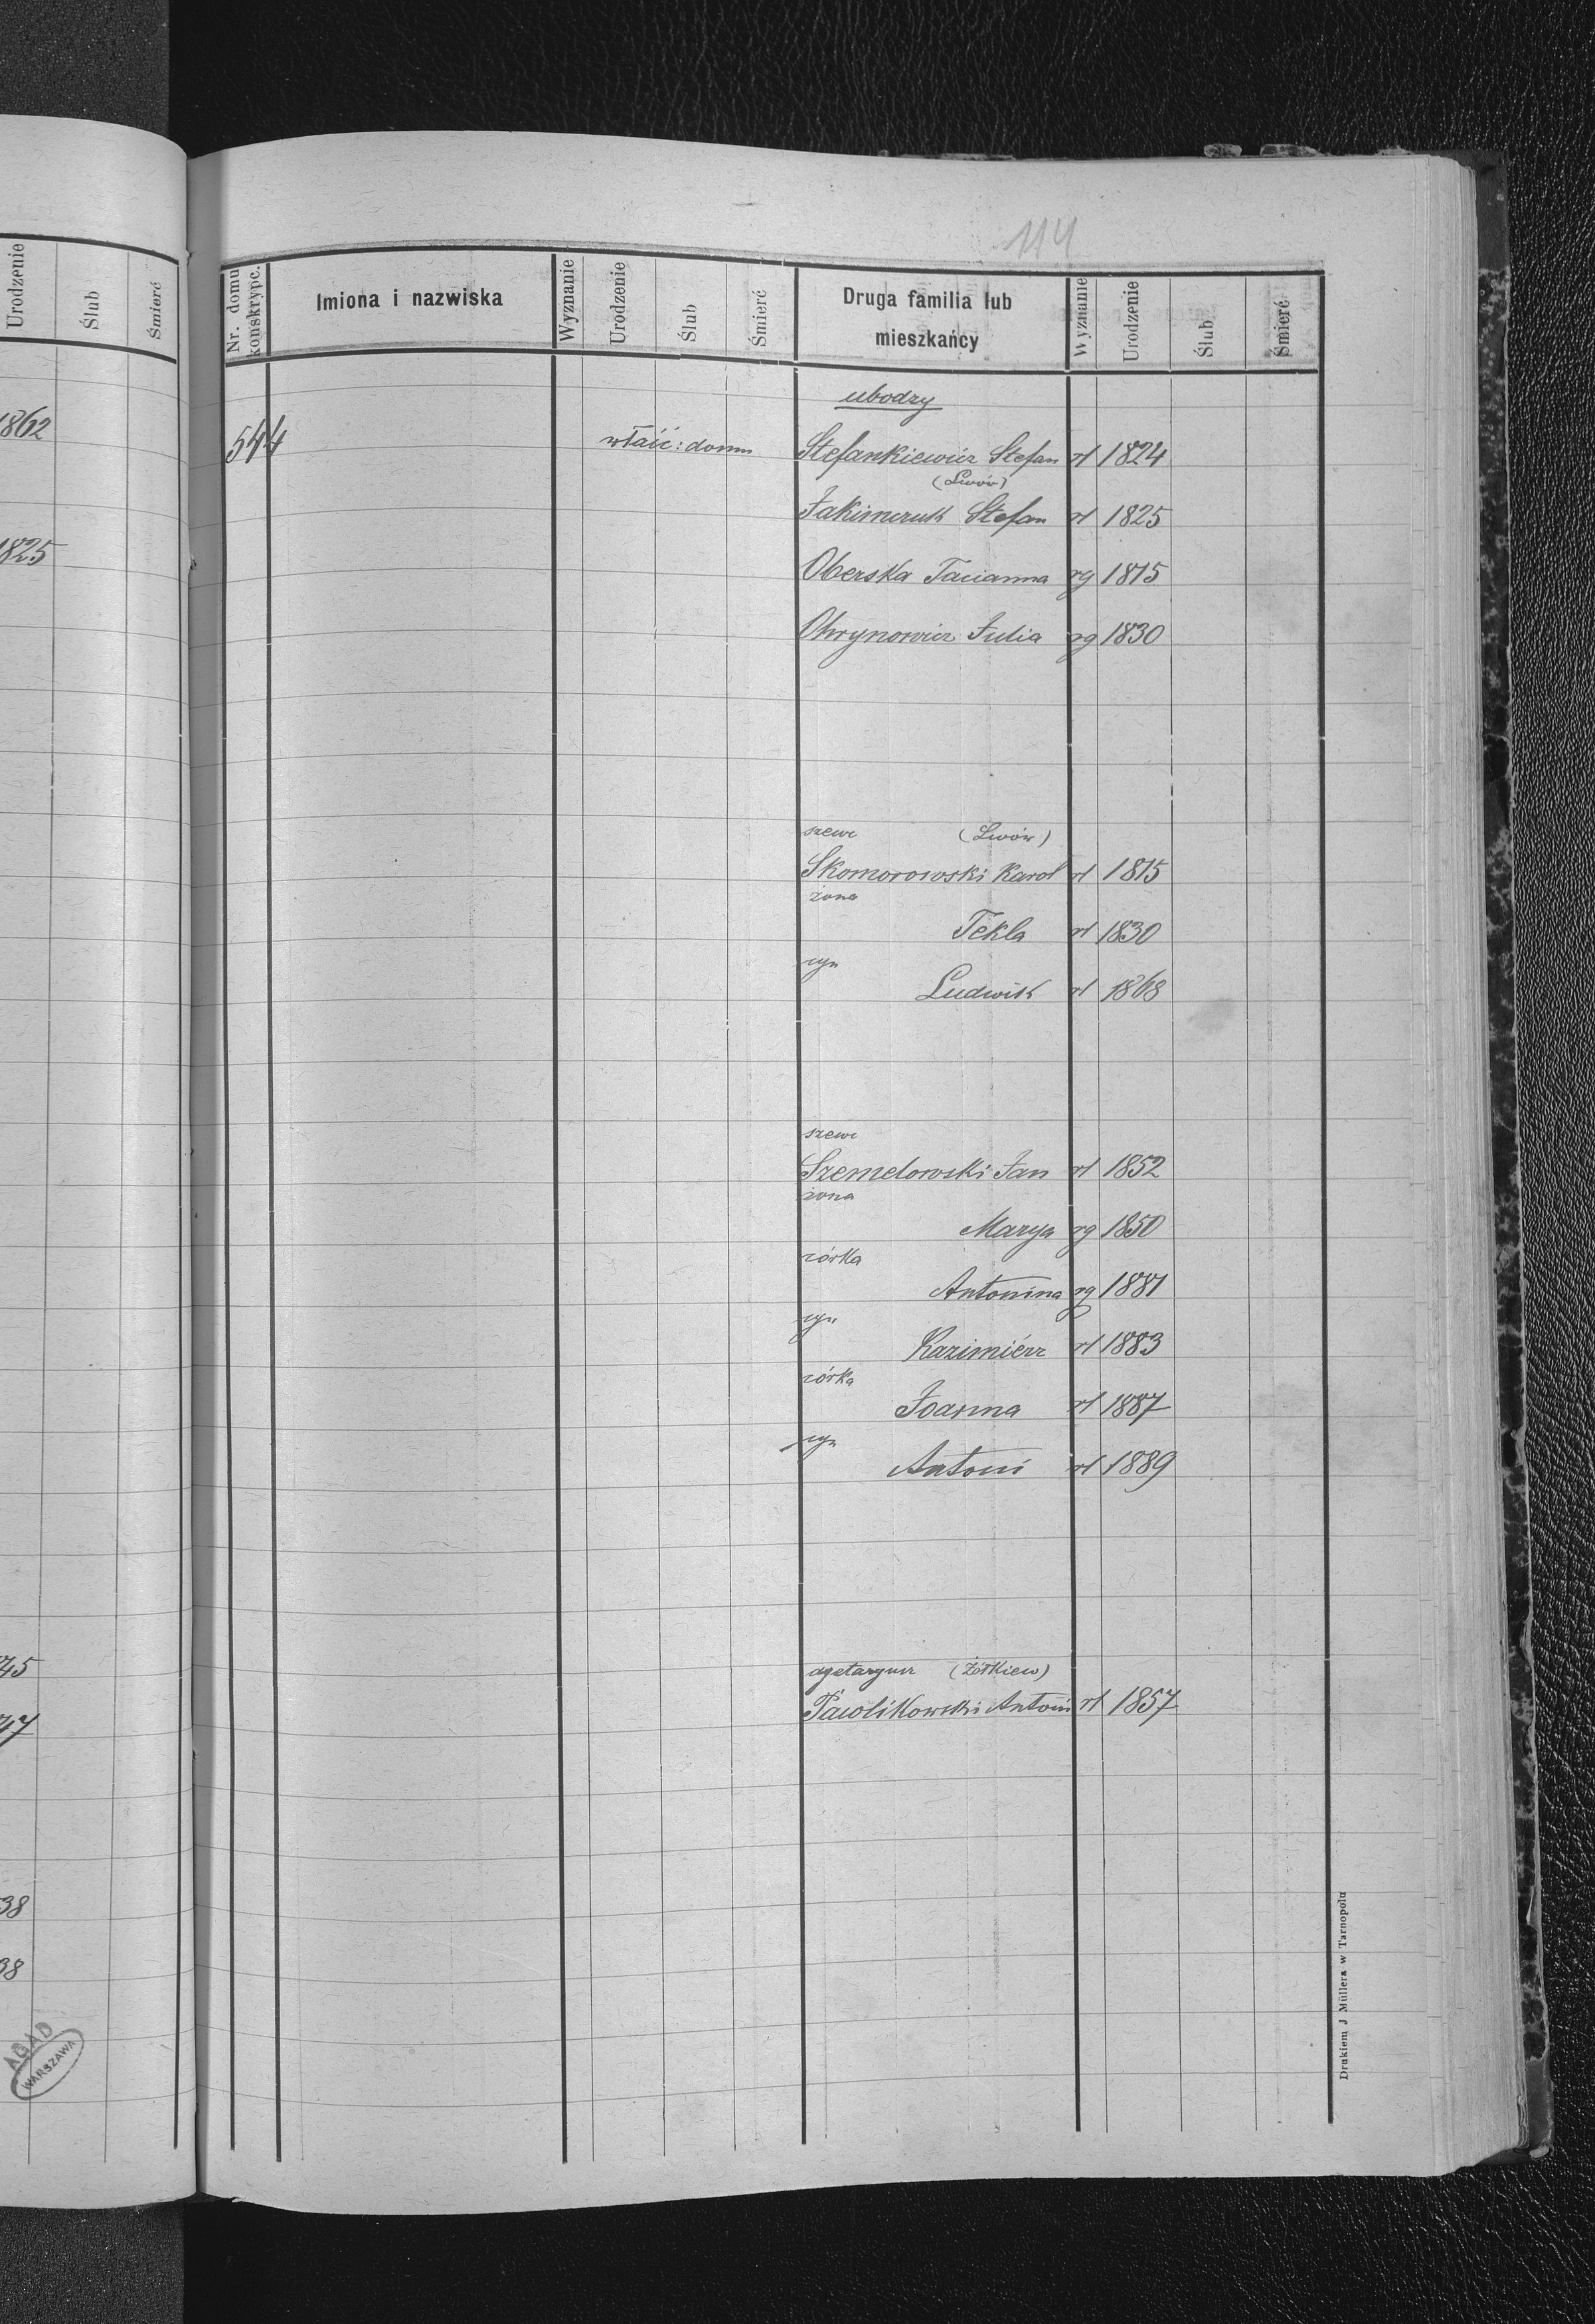 114
Urodzenie Ślub Śmierć
1862
1825
45
47
38
38
AGAD
WARSZAWA
Nr. domu konskrypc. Imiona i nazwiska Wyznanie Urodzenie Ślub Śmierć Druga familia lub mieszkańcy Wyznanie Urodzenie Ślub Śmierć
ubodzy
544 właśc: domu Stefankiewicz Stefan rł 1824
(Lwów)
Jakimczuk Stefan rł 1825
Oberska Tacianna rg 1815
Ohrynowicz Julia rg 1830
szewc (Lwów)
Skomorowski Karol rł 1815
żona
Tekla rł 1830
syn
Ludwik rł 1868
szewc
Szemelowski Jan rł 1852
żona
Marya rg 1850
córka
Antonina rg 1881
syn
Kazimiérz rł 1883
córka
Joanna rł 1887
syn
Antoni rł 1889
(Żółkiew)
Pawlikowski Antoni rł 1857
Drukiem J Müllera w Tarnopolu